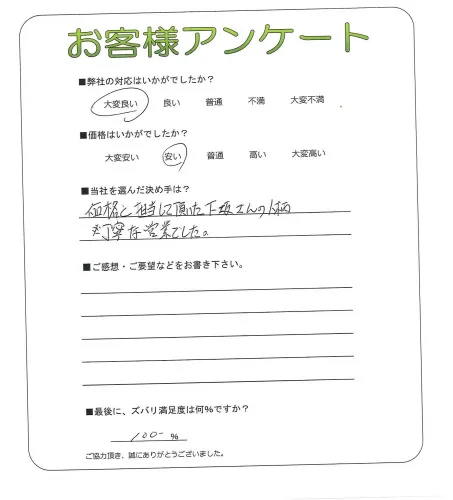 お客様アンケート
■弊社の対応はいかがでしたか？
大変良い 良い 普通 不満 大変不満
■価格はいかがでしたか？
大変安い 安い 普通 高い 大変高い
■当社を選んだ決め手は？
価格と担当して頂いた下坂さんの人柄
丁寧な営業でした。
■ご感想・ご要望などをお書き下さい。
■最後に、ズバリ満足度は何%ですか？
100 %
ご協力頂き、誠にありがとうございました。